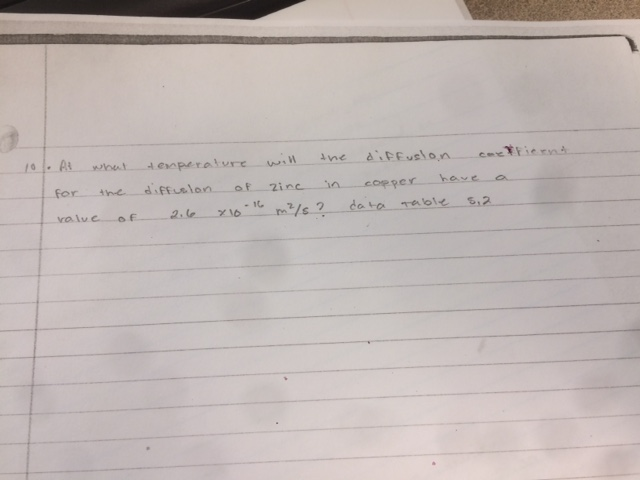 10. At what temperature will the diffusion coefficient
for the diffusion of zinc in copper have a
value of 2.6 x10^-16 m²/s? data table 5,2